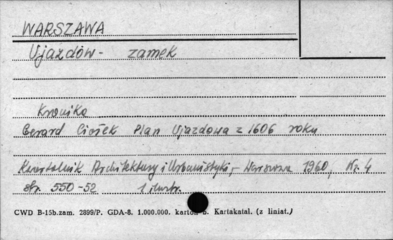 WARSZAWA
Ujazdów - zamek
Kronika
Gerard Ciołek Plan Ujazdowa z 1606 roku
Kwartalnik Architektury i Urbanistyki, - Warszawa 1960, Nr. 4
str. 550-52 1 ilustr.
CWD B-15b.zam. 2899/P. GDA-8. 1.000.000. karton b. Kartakatal. (z liniat.)